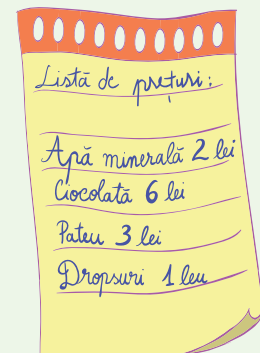 Listă de prețuri:
Apă minerală 2 lei
Ciocolată 6 lei
Pateu 3 lei
Dropsuri 1 leu